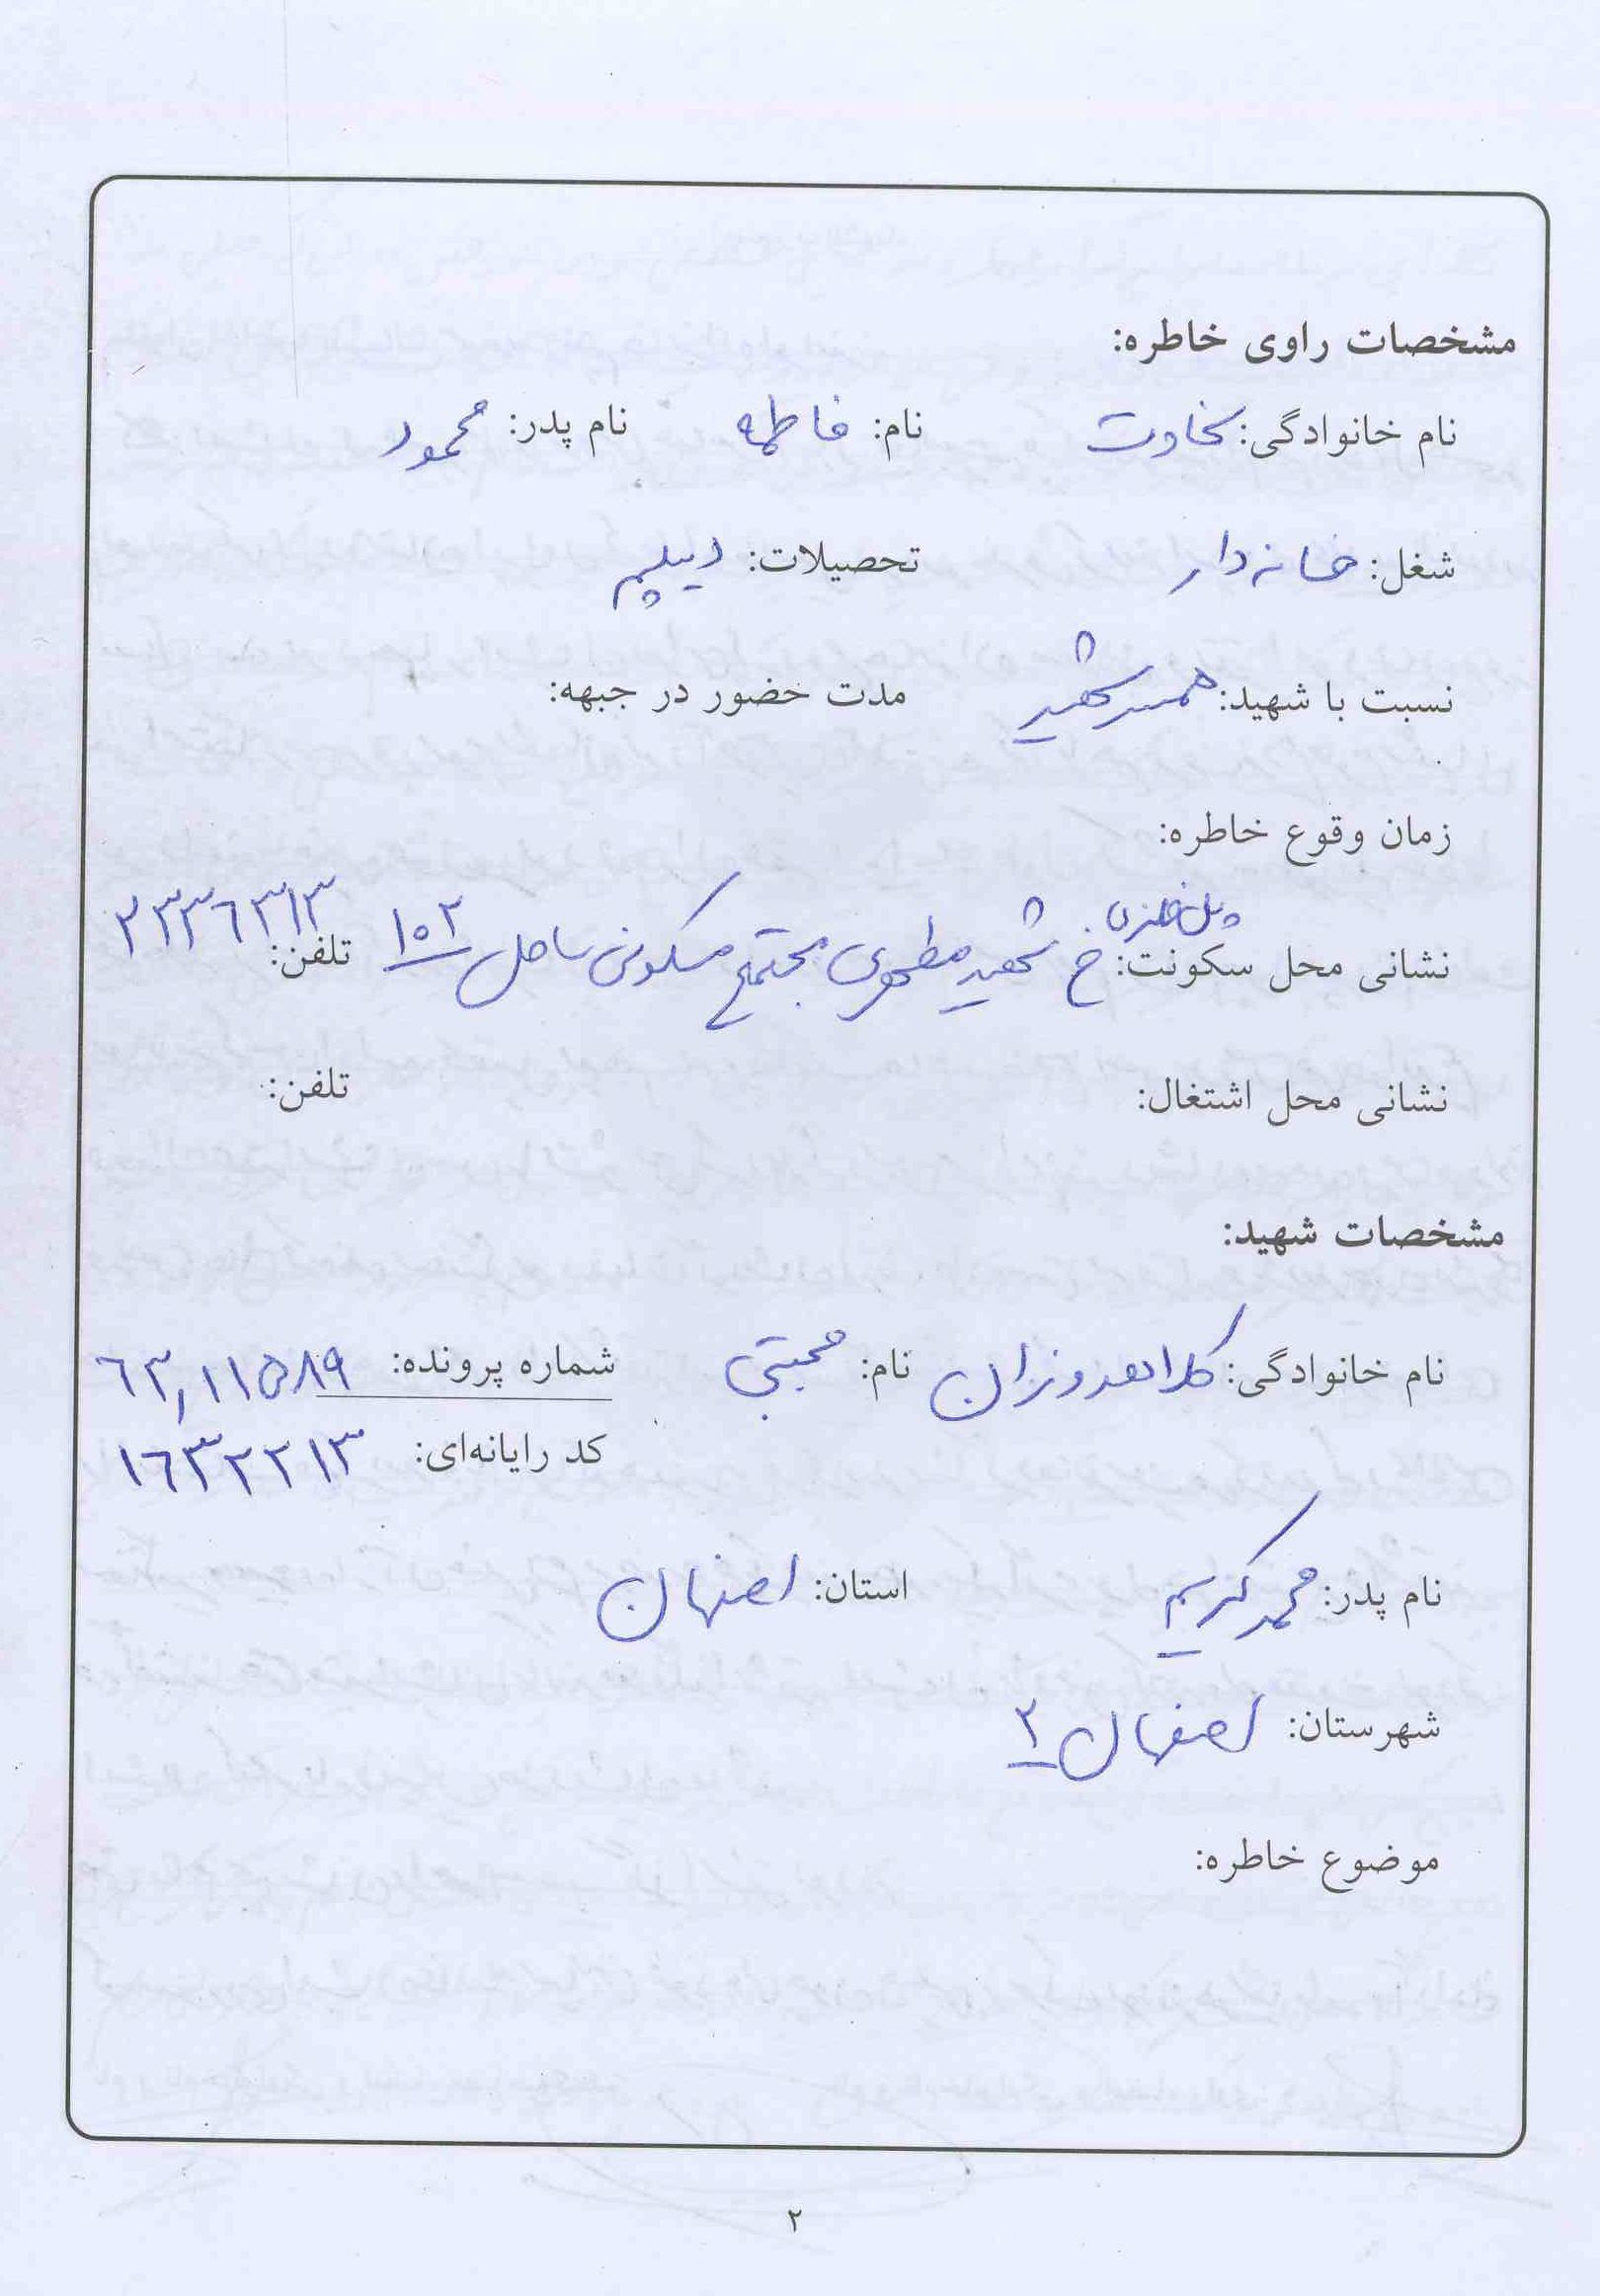 مشخصات راوی خاطره:
نام خانوادگی: سخاوت نام: فاطمه نام پدر: محمود
شغل: خانه دار تحصیلات: دیپلم
نسبت با شهید: همسر شهید مدت حضور در جبهه:
زمان وقوع خاطره:
پل فلزی
نشانی محل سکونت: خ شهید مطهری مجتمع مسکونی ساحل ۱۰۲ تلفن: ۲۳۳۶۳۱۳
نشانی محل اشتغال: تلفن:
مشخصات شهید:
نام خانوادگی: کلاهدوزان نام: مجتبی شماره پرونده: ۶۲٫۱۱۵۸۹
کد رایانه‌ای: ۱۶۳۲۲۱۳
نام پدر: محمد کریم استان: اصفهان
شهرستان: اصفهان ۲
موضوع خاطره:
۲